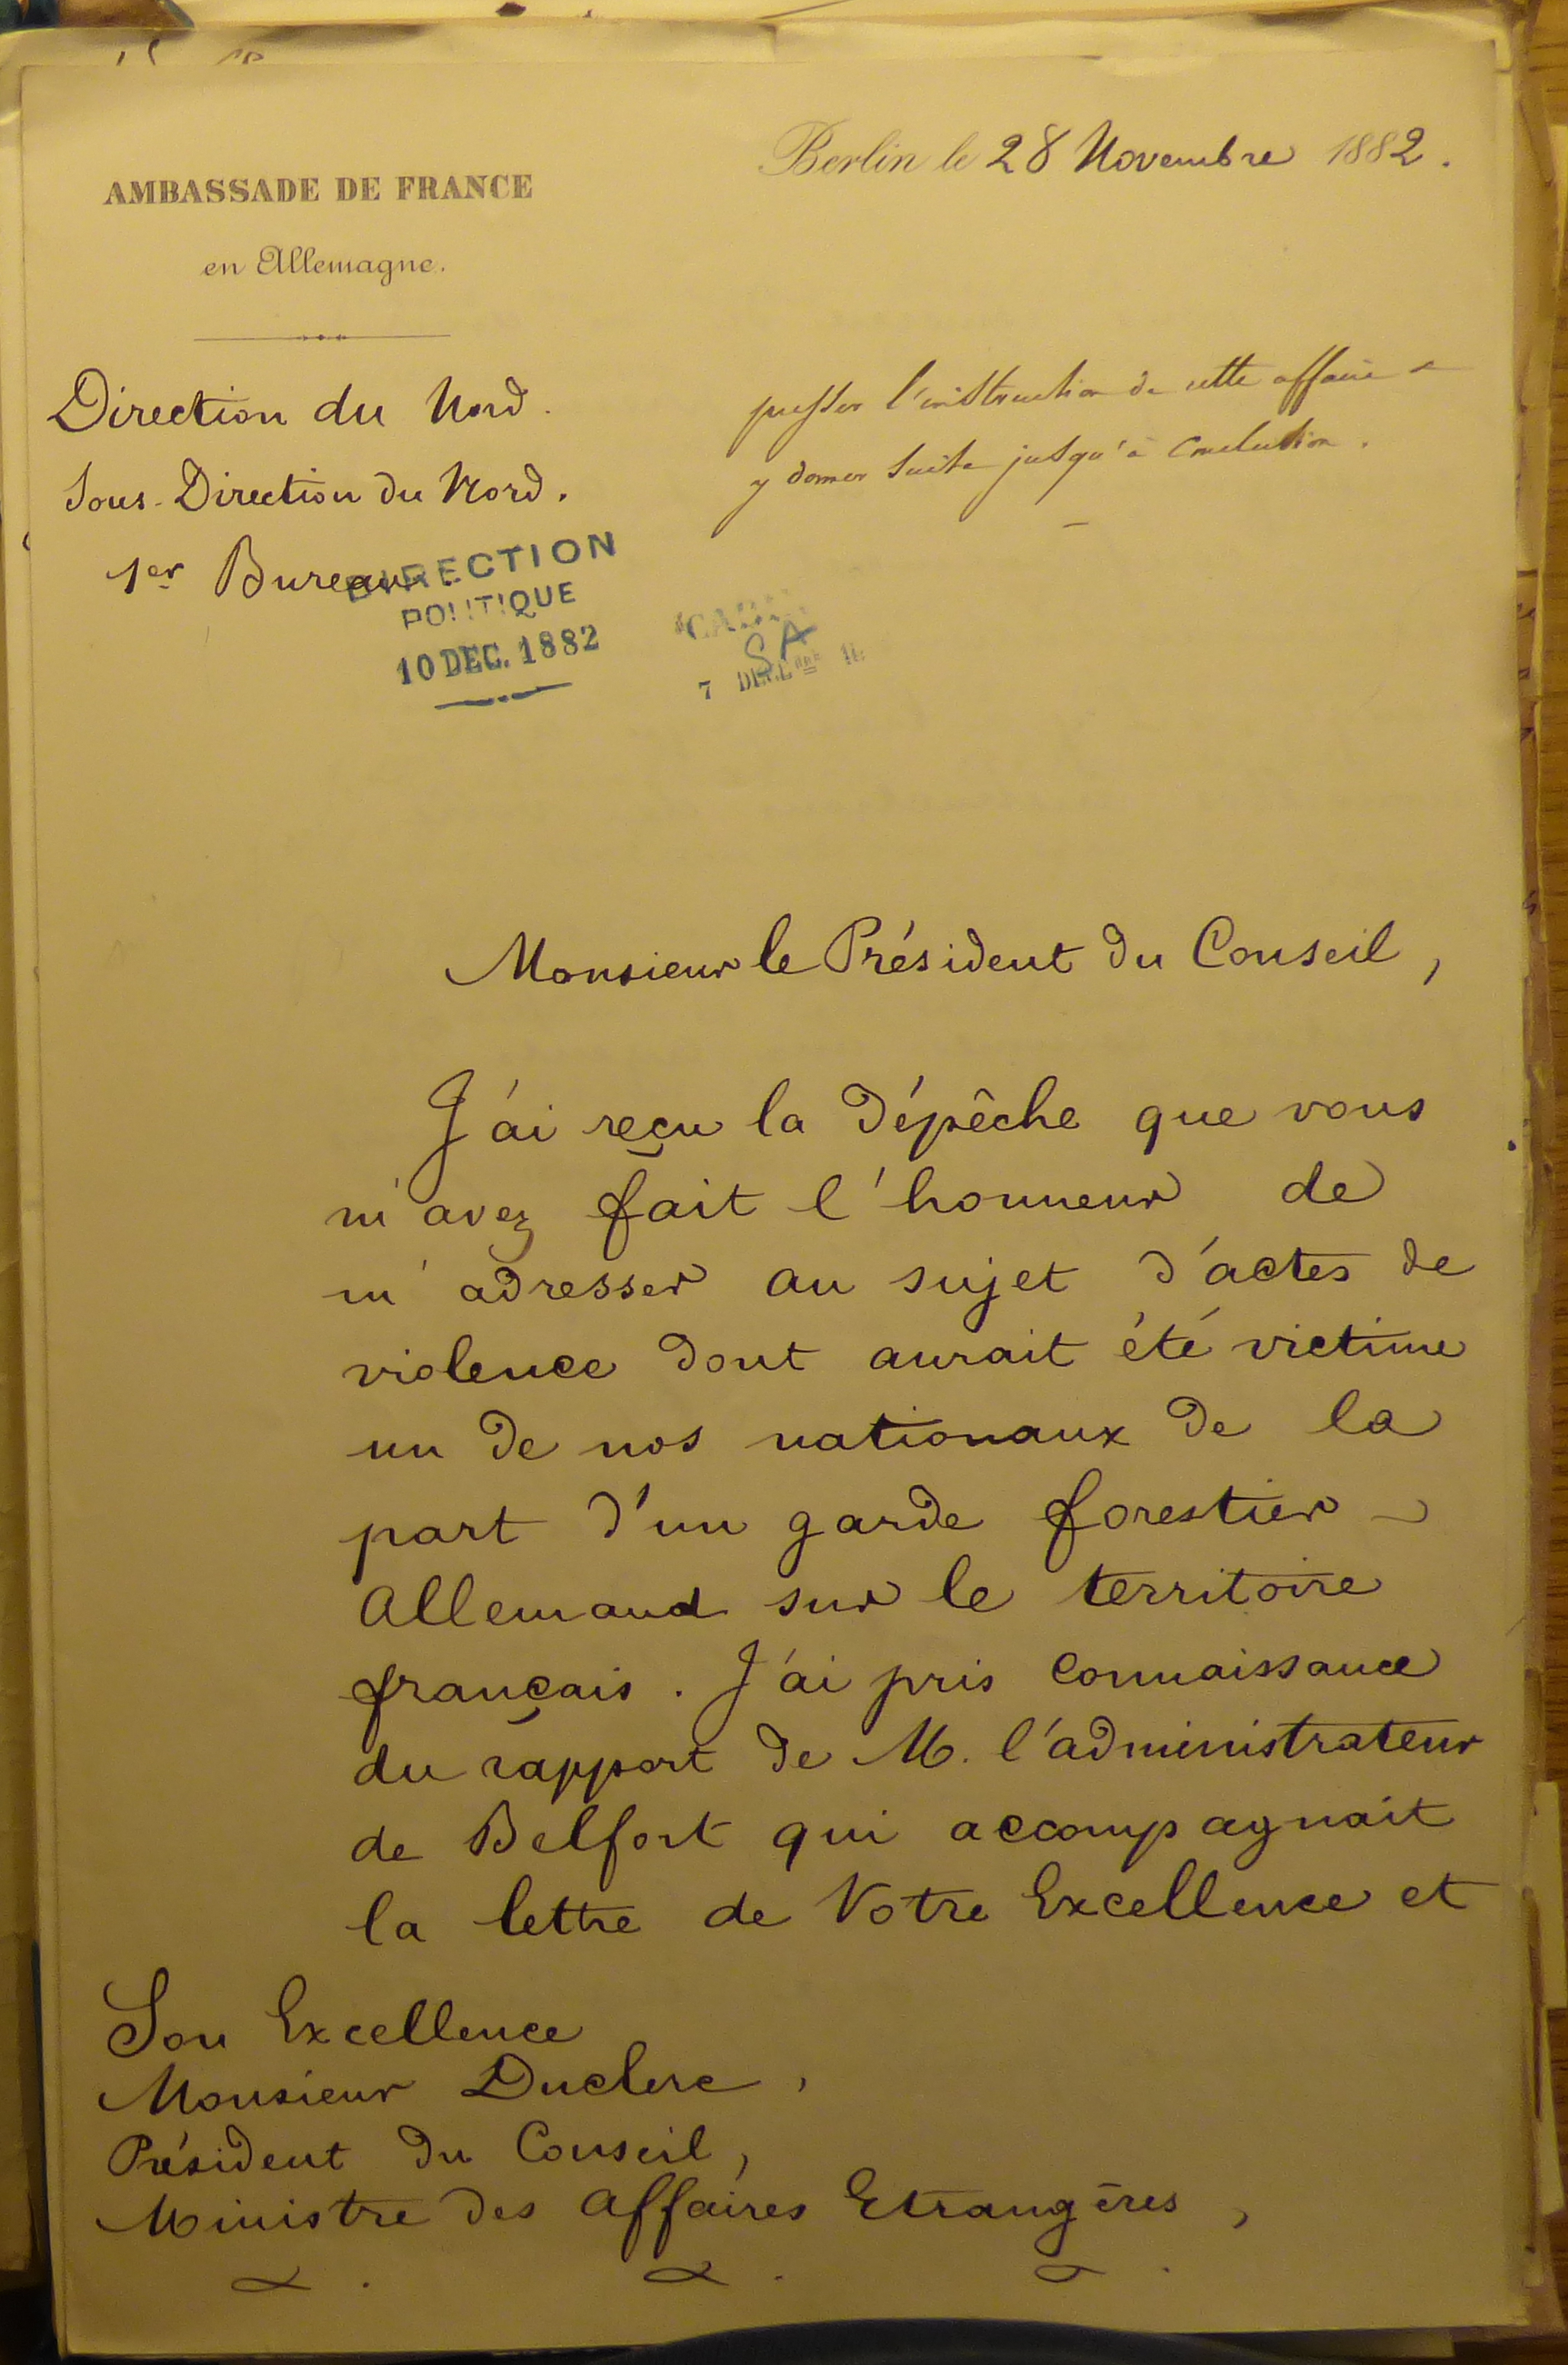 Berlin le 28 Novembre 1882.
AMBASSADE DE FRANCE
en Allemagne.
Direction du Nord.
Sous-Direction du Nord.
1er Bureau.
presser l'instruction de cette affaire &
y donner suite jusqu'à conclusion.
DIRECTION
POLITIQUE
10 DEC. 1882
SA
7
Monsieur le Président du Conseil,
J'ai reçu la dépêche que vous
m'avez fait l'honneur de
m'adresser au sujet d'actes de
violence dont aurait été victime
un de nos nationaux de la
part d'un garde forestier
Allemand sur le territoire
français. J'ai pris connaissance
du rapport de M. l'administrateur
de Belfort qui accompagnait
la lettre de Votre Excellence et
Son Excellence
Monsieur Duclerc,
Président du Conseil,
Ministre des Affaires Etrangères,
&. &. &.